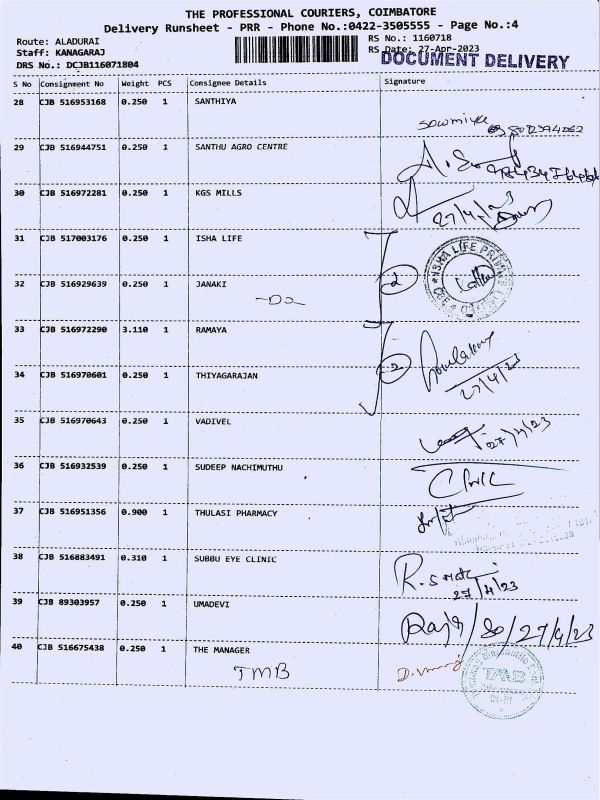 THE PROFESSIONAL COURIERS, COIMBATORE
Delivery Runsheet - PRR - Phone No.:0422-3505555 - Page No.:4
Route: ALADURAI RS No.: 1160718
Staff: KANAGARAJ RS Date: 27-Apr-2023
DRS No.: DCJB116071804 DOCUMENT DELIVERY
S No Consignment No Weight PCS Consignee Details Signature
28 CJB 516953168 0.250 1 SANTHIYA
sowmiya
29 CJB 516944751 0.250 1 SANTHU AGRO CENTRE
30 CJB 516972281 0.250 1 KGS MILLS
27/4/23
31 CJB 517003176 0.250 1 ISHA LIFE
ISHA LIFE PRIVATE
32 CJB 516929639 0.250 1 JANAKI
-Do 2
33 CJB 516972290 3.110 1 RAMAYA
2
34 CJB 516970601 0.250 1 THIYAGARAJAN
27/4/23
35 CJB 516970643 0.250 1 VADIVEL
27/4/23
36 CJB 516932539 0.250 1 SUDEEP NACHIMUTHU
37 CJB 516951356 0.900 1 THULASI PHARMACY
38 CJB 516883491 0.310 1 SUBBU EYE CLINIC
27/4/23
39 CJB 89303957 0.250 1 UMADEVI
27/4/23
40 CJB 516675438 0.250 1 THE MANAGER
TMB
TMB